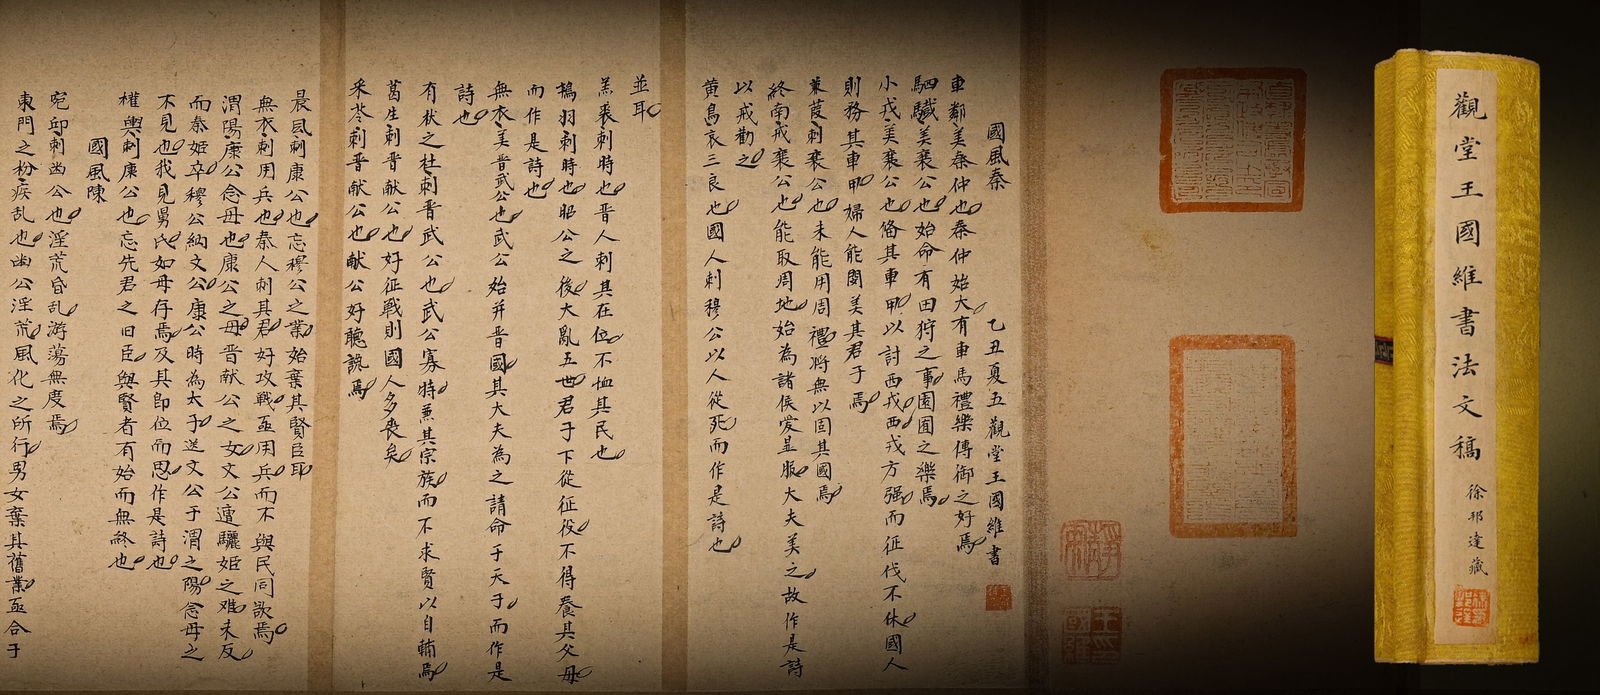 觀堂王國維書法文稿
徐邦達藏
國風秦
乙丑夏五觀堂王國維書
車鄰美秦仲也秦仲始大有車馬禮樂傳御之好焉
駟驖美襄公也始命有田狩之事園囿之樂焉
小戎美襄公也俻其車甲以討西戎西戎方强而征伐不休國人
則務其車甲婦人能閔美其君子焉
蒹葭刺襄公也未能用周禮將無以固其國焉
終南戒襄公也能取周地始為諸侯受显服大夫美之故作是詩
以戒勸之
黄鳥哀三良也國人刺穆公以人從死而作是詩也
並耳
羔裘刺時也晋人刺其在位不恤其民也
鴇羽刺時也昭公之後大亂五世君子下從征役不得養其父母
而作是詩也
無衣美晋武公也武公始并晋國其大夫為之請命于天子而作是
詩也
有杕之杜刺晋武公也武公寡特兼其宗族而不求賢以自輔焉
葛生刺晋献公也好征戰則國人多喪矣
采苓刺晋献公也献公好聽讒焉
晨風刺康公也忘穆公之業始棄其賢臣耶
無衣刺用兵也秦人刺其君好攻戰亟用兵而不與民同欲焉
渭陽康公念母也康公之母晋献公之女文公遭驪姬之难未反
而秦姬卒穆公納文公康公時為大子送文公于渭之陽念母之
不見也我見舅氏如母存焉及其即位而思作是詩也
權輿刺康公也忘先君之旧臣與賢者有始而無終也
國風陳
宛邱刺幽公也淫荒昏乱游蕩無度焉
東門之枌疾乱也幽公淫荒風化之所行男女棄其舊業亟合于